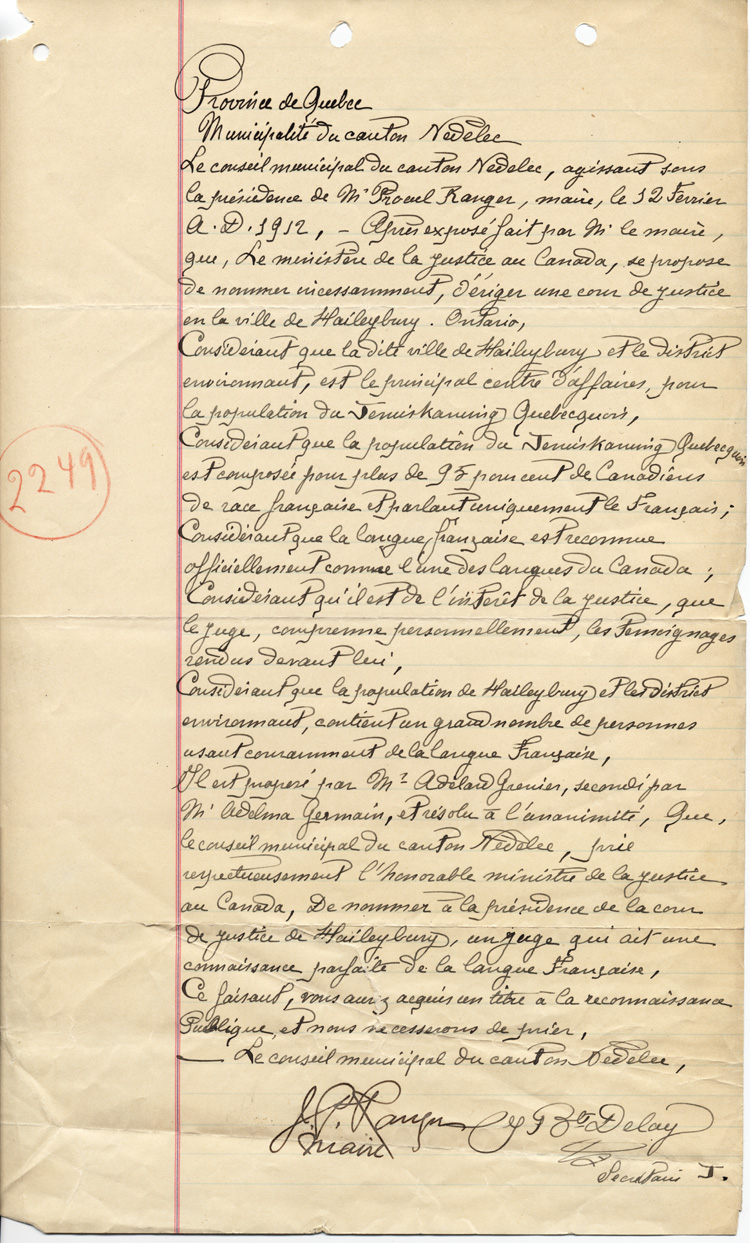 Province de Quebec
Municipalité du canton Nédélec
Le conseil municipal du canton Nédelec, agissant sous
la présidence de Mr Procul Ranger, maire, le 12 Fevrier
A. D. 1912, – Après exposé fait par Mr le maire,
que, Le ministère de la justice au Canada, se propose
de nommer incessamment, d'ériger une cour de justice
en la ville de Haileybury. Ontario,
Considérant que la dite ville de Haileybury et le district
environnant, est le principal centre d'affaires, pour
la population du Temiskaming Quebecquois,
Considérant que la population du Temiskaming Quebecquois
est composée pour plus de 95 pour cent de Canadiens
de race française et parlant uniquement le Français;
Considérant que la langue française est reconnue
officiellement comme l'une des langues du Canada;
Considérant qu'il est de l'intérêt de la justice, que
le juge, comprenne personnellement, les temoignages
rendus devant lui,
Considérant que la population de Haileybury et les district
environnant, contient un grand nombre de personnes
usant couramment de la langue Française,
Il est proposé par Mr Adélard Grenier, secondé par
Mr Adelma Germain, et résolu à l'ananimité, Que,
le conseil municipal du canton Nédelec, prie
respectueusement l'honorable ministre de la justice
au Canada, De nommer à la présidence de la cour
de justice de Haileybury, un juge qui ait une
connaissance parfaite de la langue Française,
Ce faisant, vous aurez acquis un titre à la reconnaissance
Publique, et nous ne cesserons de prier,
— Le conseil municipal du canton Nédelec,
J. P. Ranger
maire
J Bte Delay
Secretaire T.
2249